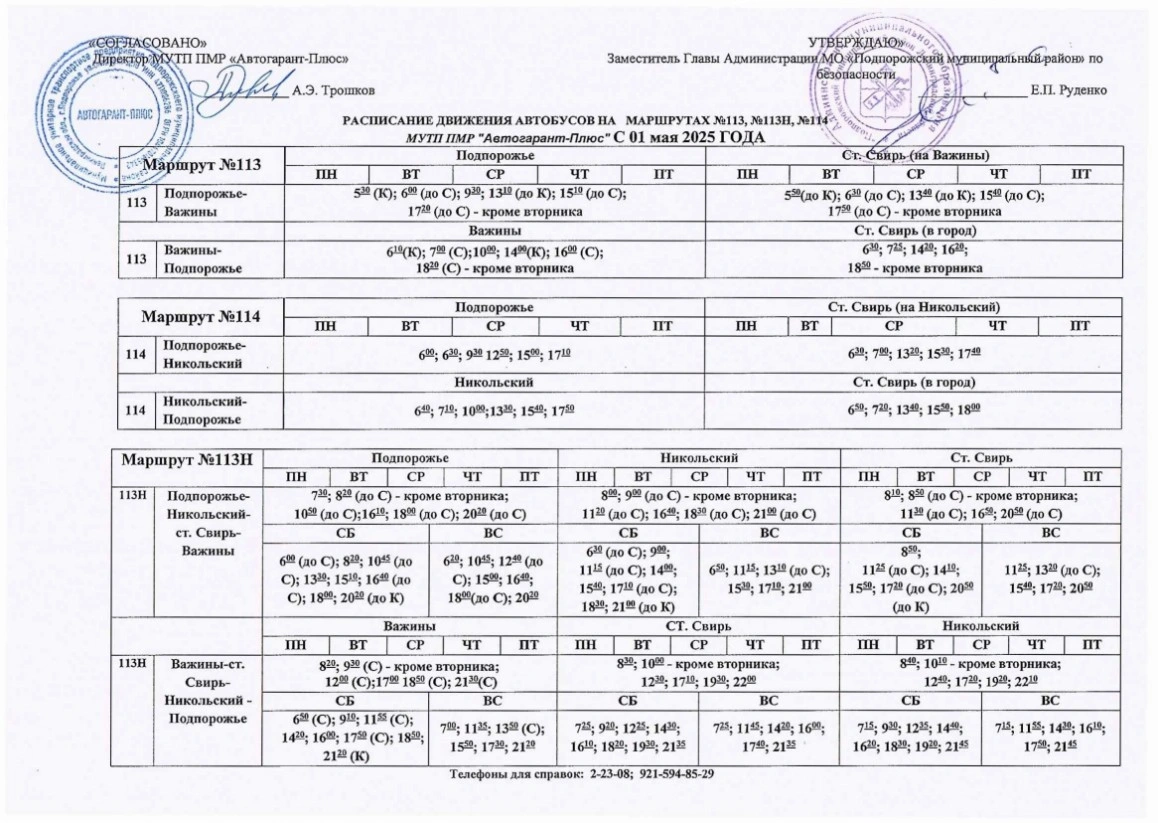 «СОГЛАСОВАНО»
Директор МУТП ПМР «Автогарант-Плюс»
А.Э. Трошков
УТВЕРЖДАЮ»
Заместитель Главы Администрации МО «Подпорожский муниципальный район» по
безопасности
Е.П. Руденко
АВТОГАРАНТ-ПЛЮС
РАСПИСАНИЕ ДВИЖЕНИЯ АВТОБУСОВ НА МАРШРУТАХ №113, №113Н, №114
МУТП ПМР "Автогарант-Плюс" С 01 мая 2025 ГОДА
Маршрут №113 Подпорожье Ст. Свирь (на Важины)
ПН ВТ СР ЧТ ПТ ПН ВТ СР ЧТ ПТ
113 Подпорожье-Важины
5³⁰ (К); 6⁰⁰ (до С); 9³⁰; 13¹⁰ (до К); 15¹⁰ (до С);
17²⁰ (до С) - кроме вторника
5⁵⁰(до К); 6³⁰ (до С); 13⁴⁰ (до К); 15⁴⁰ (до С);
17⁵⁰ (до С) - кроме вторника
Важины Ст. Свирь (в город)
113 Важины-Подпорожье
6¹⁰(К); 7⁰⁰ (С);10⁰⁰; 14⁰⁰(К); 16⁰⁰ (С);
18²⁰ (С) - кроме вторника
6³⁰; 7²⁵; 14²⁰; 16²⁰;
18⁵⁰ - кроме вторника
Маршрут №114 Подпорожье Ст. Свирь (на Никольский)
ПН ВТ СР ЧТ ПТ ПН ВТ СР ЧТ ПТ
114 Подпорожье-Никольский
6⁰⁰; 6³⁰; 9³⁰ 12⁵⁰; 15⁰⁰; 17¹⁰
6³⁰; 7⁰⁰; 13²⁰; 15³⁰; 17⁴⁰
Никольский Ст. Свирь (в город)
114 Никольский-Подпорожье
6⁴⁰; 7¹⁰; 10⁰⁰;13³⁰; 15⁴⁰; 17⁵⁰
6⁵⁰; 7²⁰; 13⁴⁰; 15⁵⁰; 18⁰⁰
Маршрут №113Н Подпорожье Никольский Ст. Свирь
ПН ВТ СР ЧТ ПТ ПН ВТ СР ЧТ ПТ ПН ВТ СР ЧТ ПТ
113Н Подпорожье-
Никольский-
ст. Свирь-
Важины
7³⁰; 8²⁰ (до С) - кроме вторника;
10⁵⁰ (до С);16¹⁰; 18⁰⁰ (до С); 20²⁰ (до С)
8⁰⁰; 9⁰⁰ (до С) - кроме вторника;
11²⁰ (до С); 16⁴⁰; 18³⁰ (до С); 21⁰⁰ (до С)
8¹⁰; 8⁵⁰ (до С) - кроме вторника;
11³⁰ (до С); 16⁵⁰; 20⁵⁰ (до С)
СБ ВС СБ ВС СБ ВС
6⁰⁰ (до С); 8²⁰; 10⁴⁵ (до
С); 13³⁰; 15¹⁰; 16⁴⁰ (до
С); 18⁰⁰; 20²⁰ (до К)
6²⁰; 10⁴⁵; 12⁴⁰ (до
С); 15⁰⁰; 16⁴⁰;
18⁰⁰(до С); 20²⁰
6³⁰ (до С); 9⁰⁰;
11¹⁵ (до С); 14⁰⁰;
15⁴⁰; 17¹⁰ (до С);
18³⁰; 21⁰⁰ (до К)
6⁵⁰; 11¹⁵; 13¹⁰ (до С);
15³⁰; 17¹⁰; 21⁰⁰
8⁵⁰;
11²⁵ (до С); 14¹⁰;
15⁵⁰; 17²⁰ (до С); 20⁵⁰
(до К)
11²⁵; 13²⁰ (до С);
15⁴⁰; 17²⁰; 20⁵⁰
Важины СТ. Свирь Никольский
ПН ВТ СР ЧТ ПТ ПН ВТ СР ЧТ ПТ ПН ВТ СР ЧТ ПТ
113Н Важины-ст.
Свирь-
Никольский -
Подпорожье
8²⁰; 9³⁰ (С) - кроме вторника;
12⁰⁰ (С);17⁰⁰ 18⁵⁰ (С); 21³⁰(С)
8³⁰; 10⁰⁰ - кроме вторника;
12³⁰; 17¹⁰; 19³⁰; 22⁰⁰
8⁴⁰; 10¹⁰ - кроме вторника;
12⁴⁰; 17²⁰; 19²⁰; 22¹⁰
СБ ВС СБ ВС СБ ВС
6⁵⁰ (С); 9¹⁰; 11⁵⁵ (С);
14²⁰; 16⁰⁰; 17⁵⁰ (С); 18⁵⁰;
21²⁰ (К)
7⁰⁰; 11³⁵; 13⁵⁰ (С);
15⁵⁰; 17³⁰; 21²⁰
7²⁵; 9²⁰; 12²⁵; 14³⁰;
16¹⁰; 18²⁰; 19³⁰; 21³⁵
7²⁵; 11⁴⁵; 14²⁰; 16⁰⁰;
17⁴⁰; 21³⁵
7¹⁵; 9³⁰; 12³⁵; 14⁴⁰;
16²⁰; 18³⁰; 19²⁰; 21⁴⁵
7¹⁵; 11⁵⁵; 14³⁰; 16¹⁰;
17⁵⁰; 21⁴⁵
Телефоны для справок: 2-23-08; 921-594-85-29